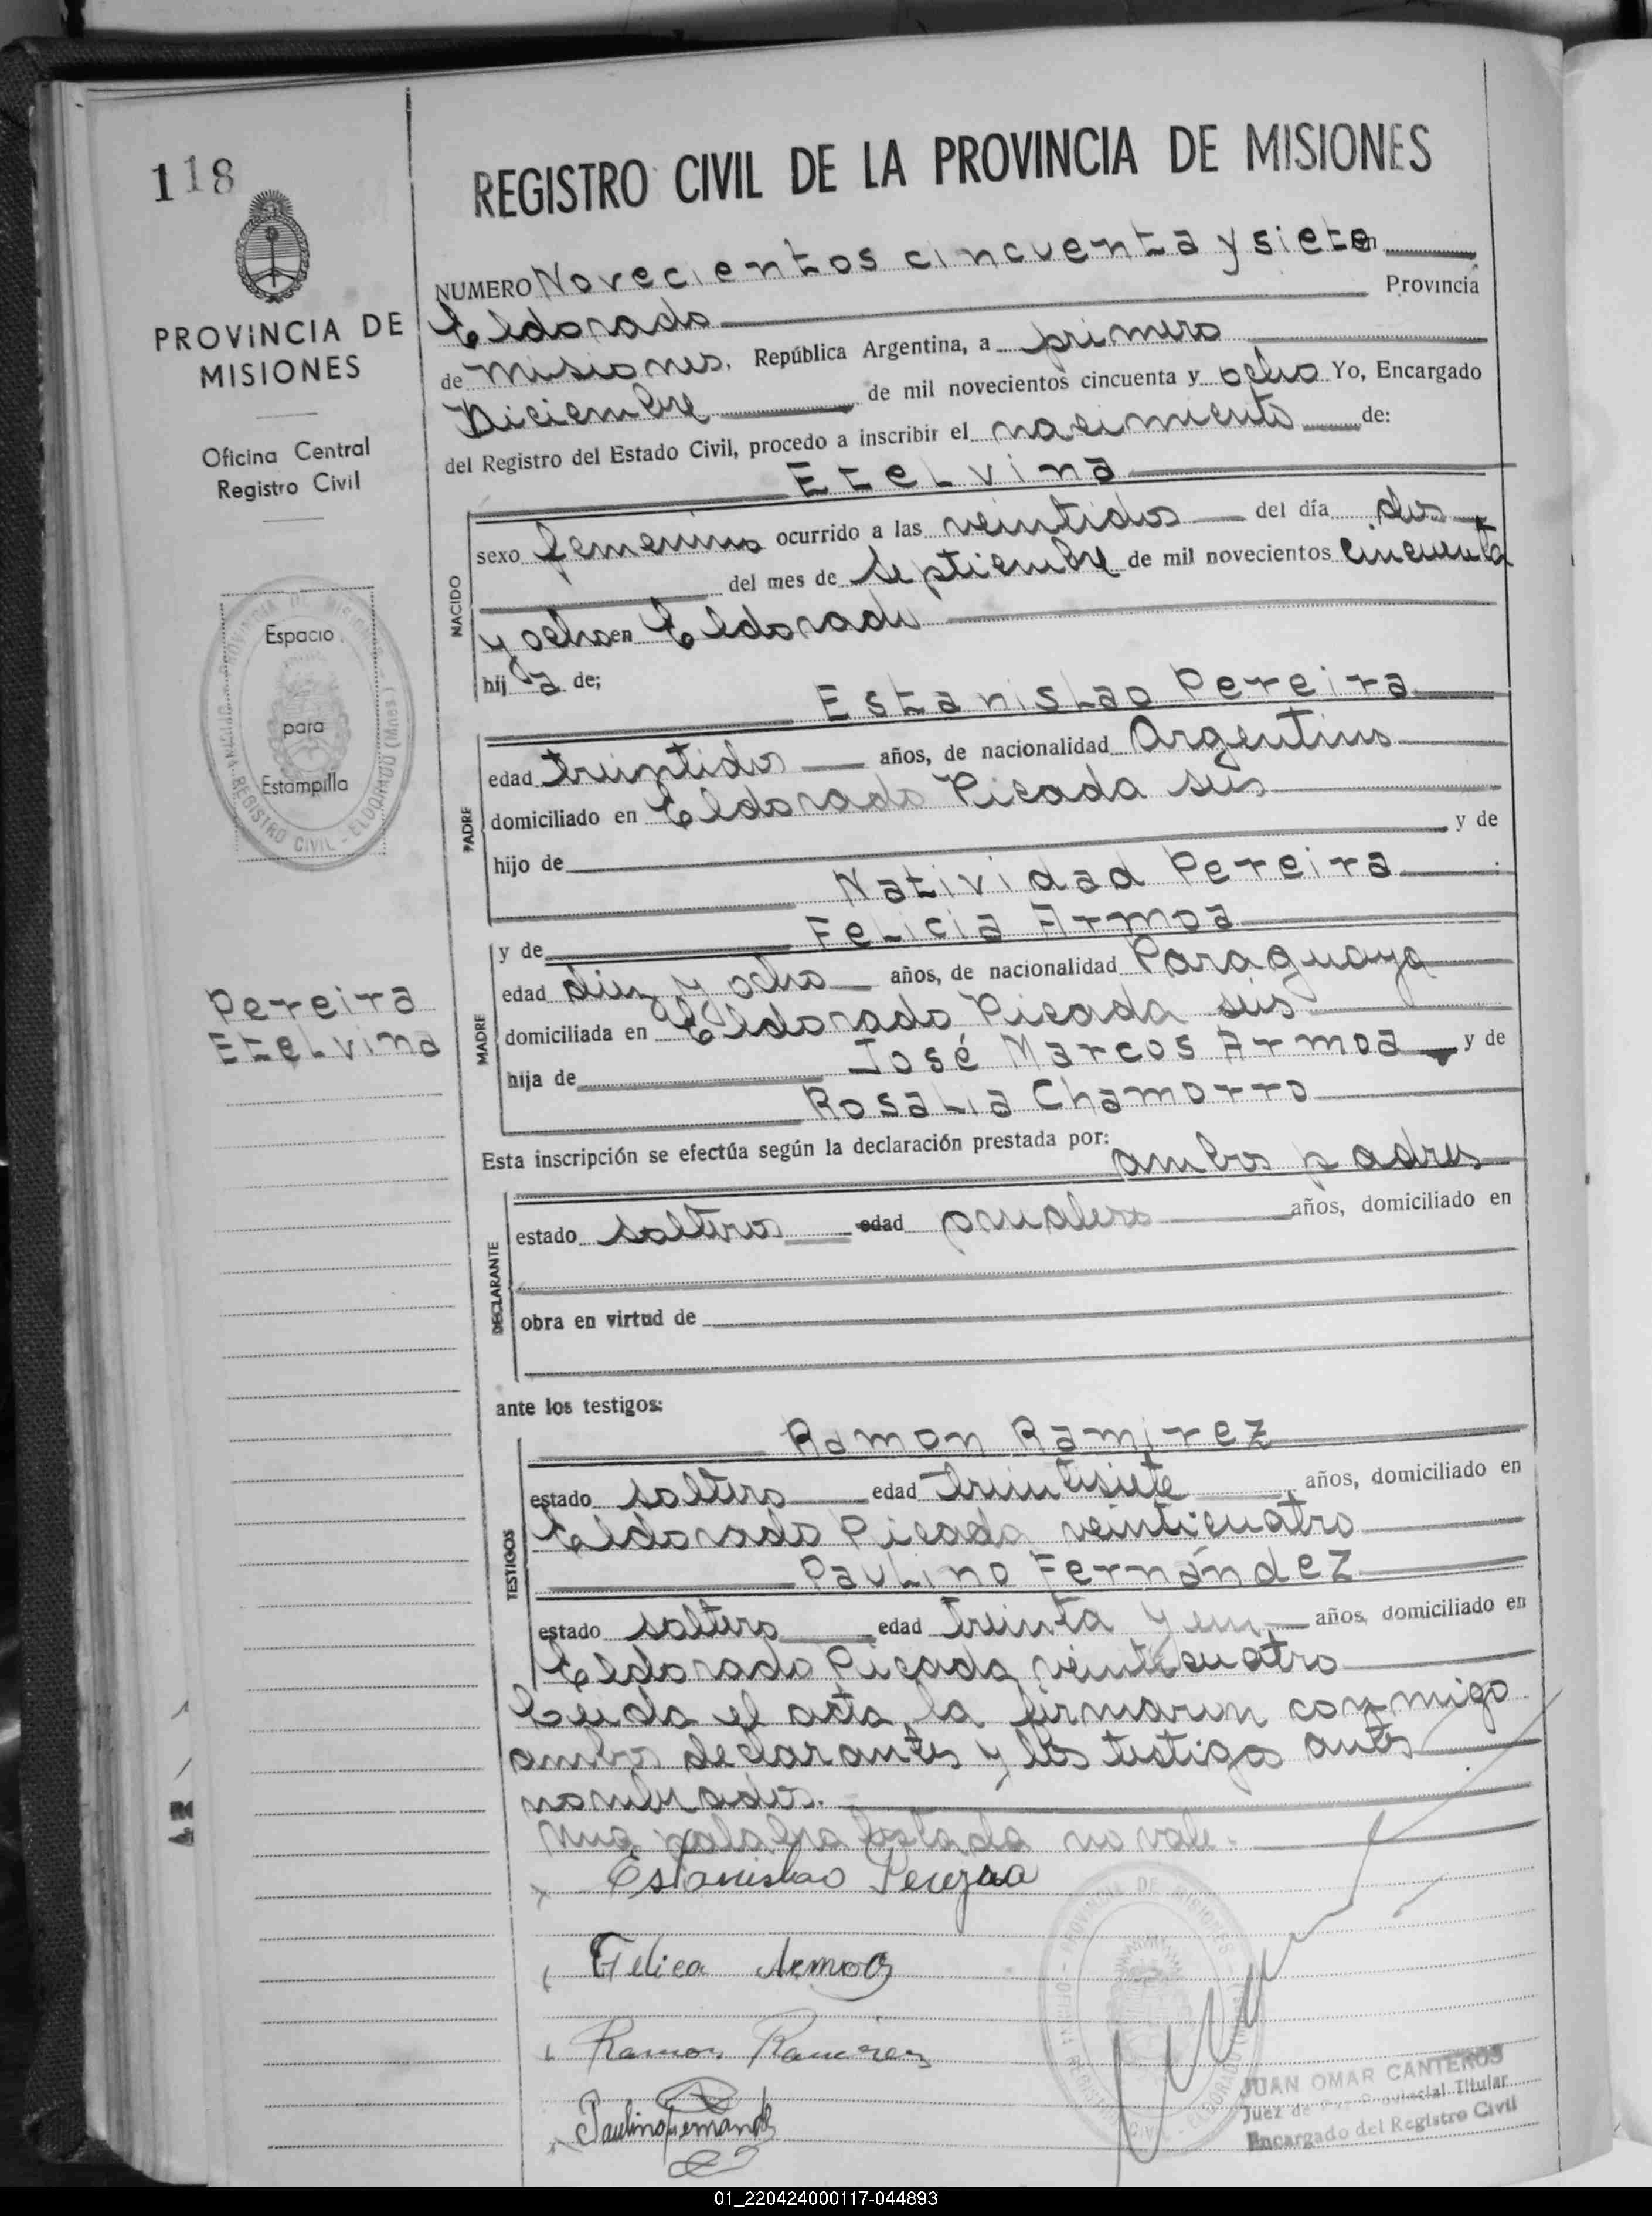 118
REGISTRO CIVIL DE LA PROVINCIA DE MISIONES
PROVINCIA DE
MISIONES
Oficina Central
Registro Civil
Espacio
para
Estampilla
Pereira
Etelvina
NUMERO Novecientos cincuenta y siete en
Eldorado Provincia
de Misiones. República Argentina, a primero
Diciembre de mil novecientos cincuenta y ocho Yo, Encargado
del Registro del Estado Civil, procedo a inscribir el nacimiento de:
Etelvina
NACIDO
sexo femenino ocurrido a las veintidos del día dos
del mes de Septiembre de mil novecientos cincuenta
y ocho en Eldorado
hij a de;
Estanislao Pereira
PADRE
edad treintidos años, de nacionalidad Argentino
domiciliado en Eldorado Picada seis
hijo de y de
Natividad Pereira
y de Felicia Armoa
MADRE
edad diez y ocho años, de nacionalidad Paraguaya
domiciliada en Eldorado Picada seis
hija de José Marcos Armoa y de
Rosalia Chamorro
Esta inscripción se efectúa según la declaración prestada por: ambos padres
DECLARANTE
estado solteros edad años, domiciliado en
obra en virtud de
ante los testigos:
Ramon Ramirez
TESTIGOS
estado soltero edad treintisiete años, domiciliado en
Eldorado Picada veinticuatro
Paulino Fernández
estado soltero edad treinta y un años, domiciliado en
Eldorado Picada veinticuatro
Leida el acta, la firmaron conmigo
ambos declarantes y los testigos antes
nombrados.
Una palabra testada no vale.
Estanislao Pereira
Felica Armoa
Ramon Ramirez
Paulino Fernandez
JUAN OMAR CANTEROS
Juez de Paz Provincial Titular
Encargado del Registro Civil
01_220424000117-044893